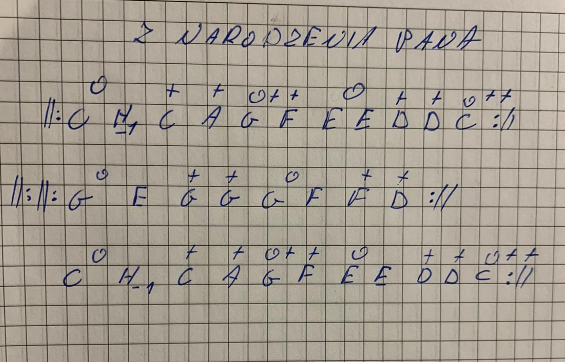 Z NARODZENIA PANA
O + + O + + O + + O + +
||: C H-1 C A G F E E D D C ://
O + + O + +
||:||: G E G G G F F D ://
O + + O + + O + + O + +
C H-1 C A G F E E D D C ://